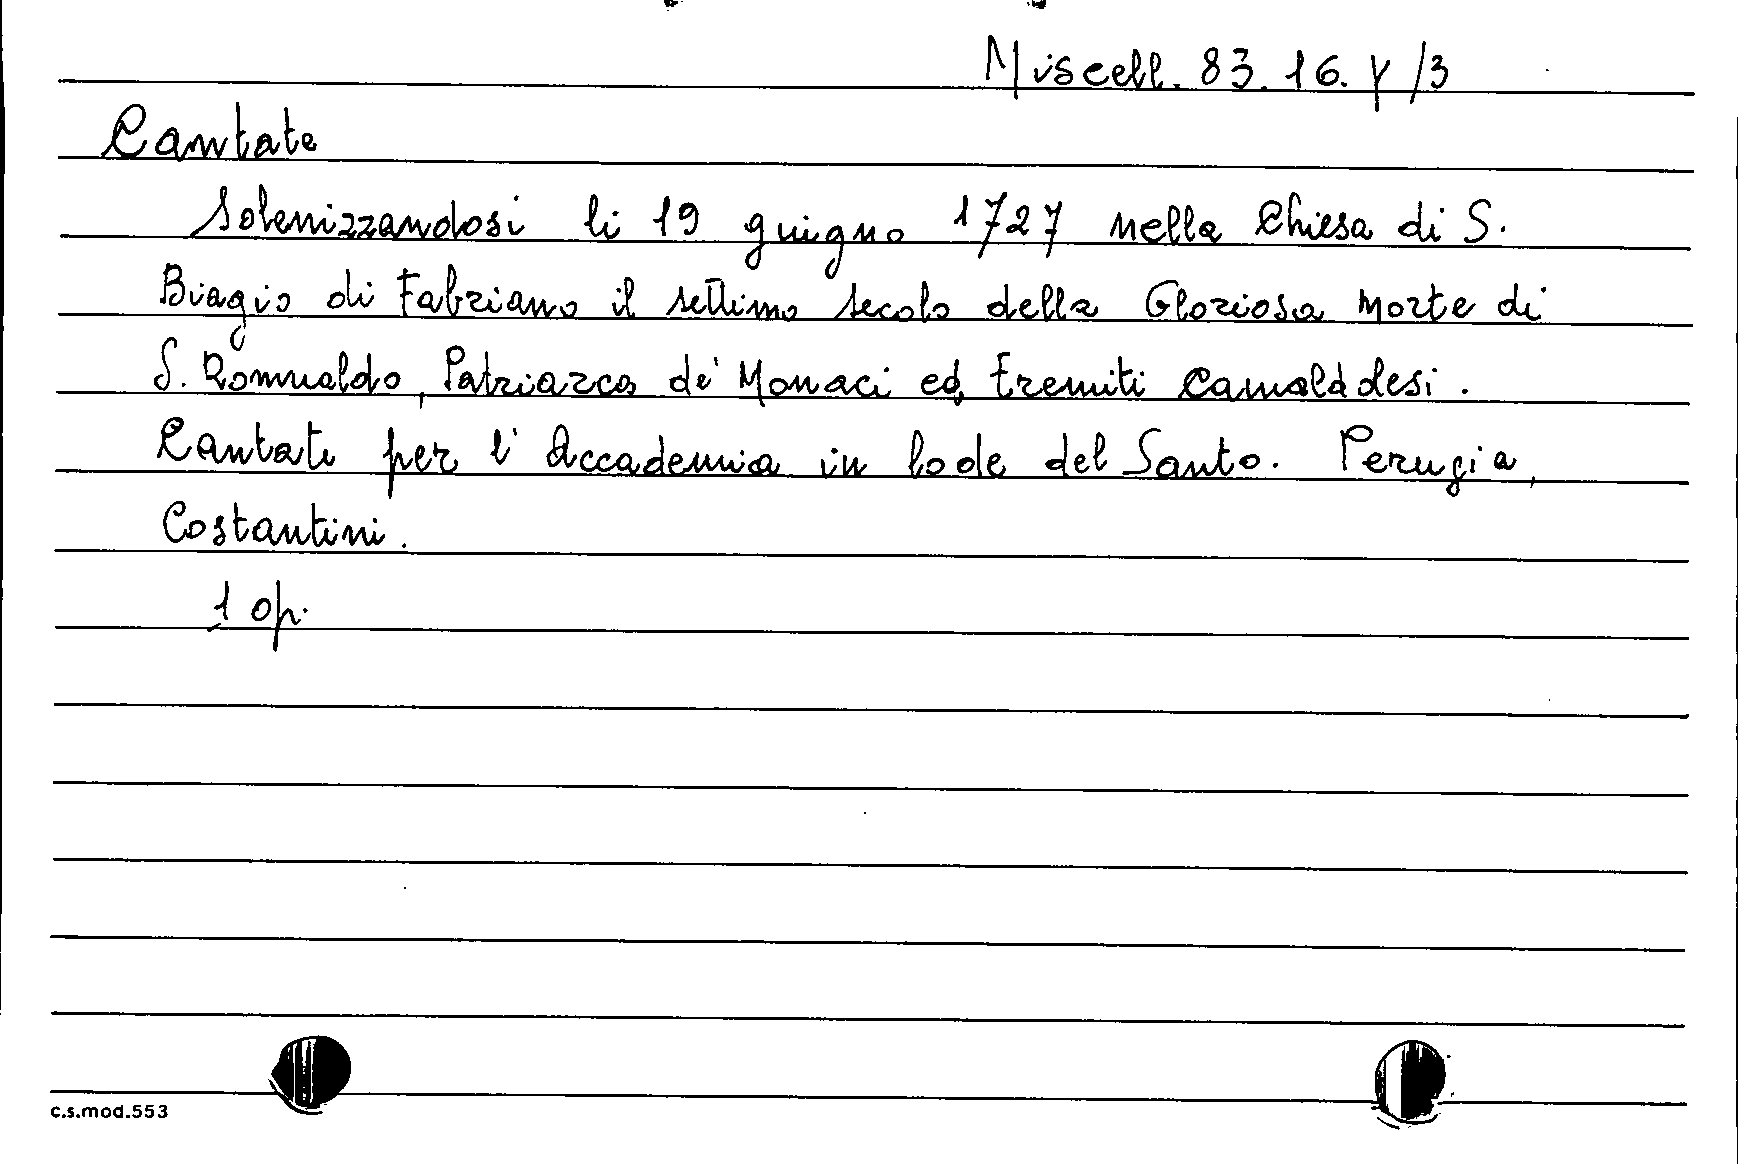 Miscell. 83.16.Y/3
Cantate
Solenizzandosi li 19 guigno 1727 nella Chiesa di S.
Biagio di Fabriano il settimo secolo della Gloriosa Morte di
S. Romualdo, Patriarca de' Monaci ed Eremiti Camaldolesi.
Cantate per l'Accademia in lode del Santo. Perugia,
Costantini.
1 op.
c.s.mod.553